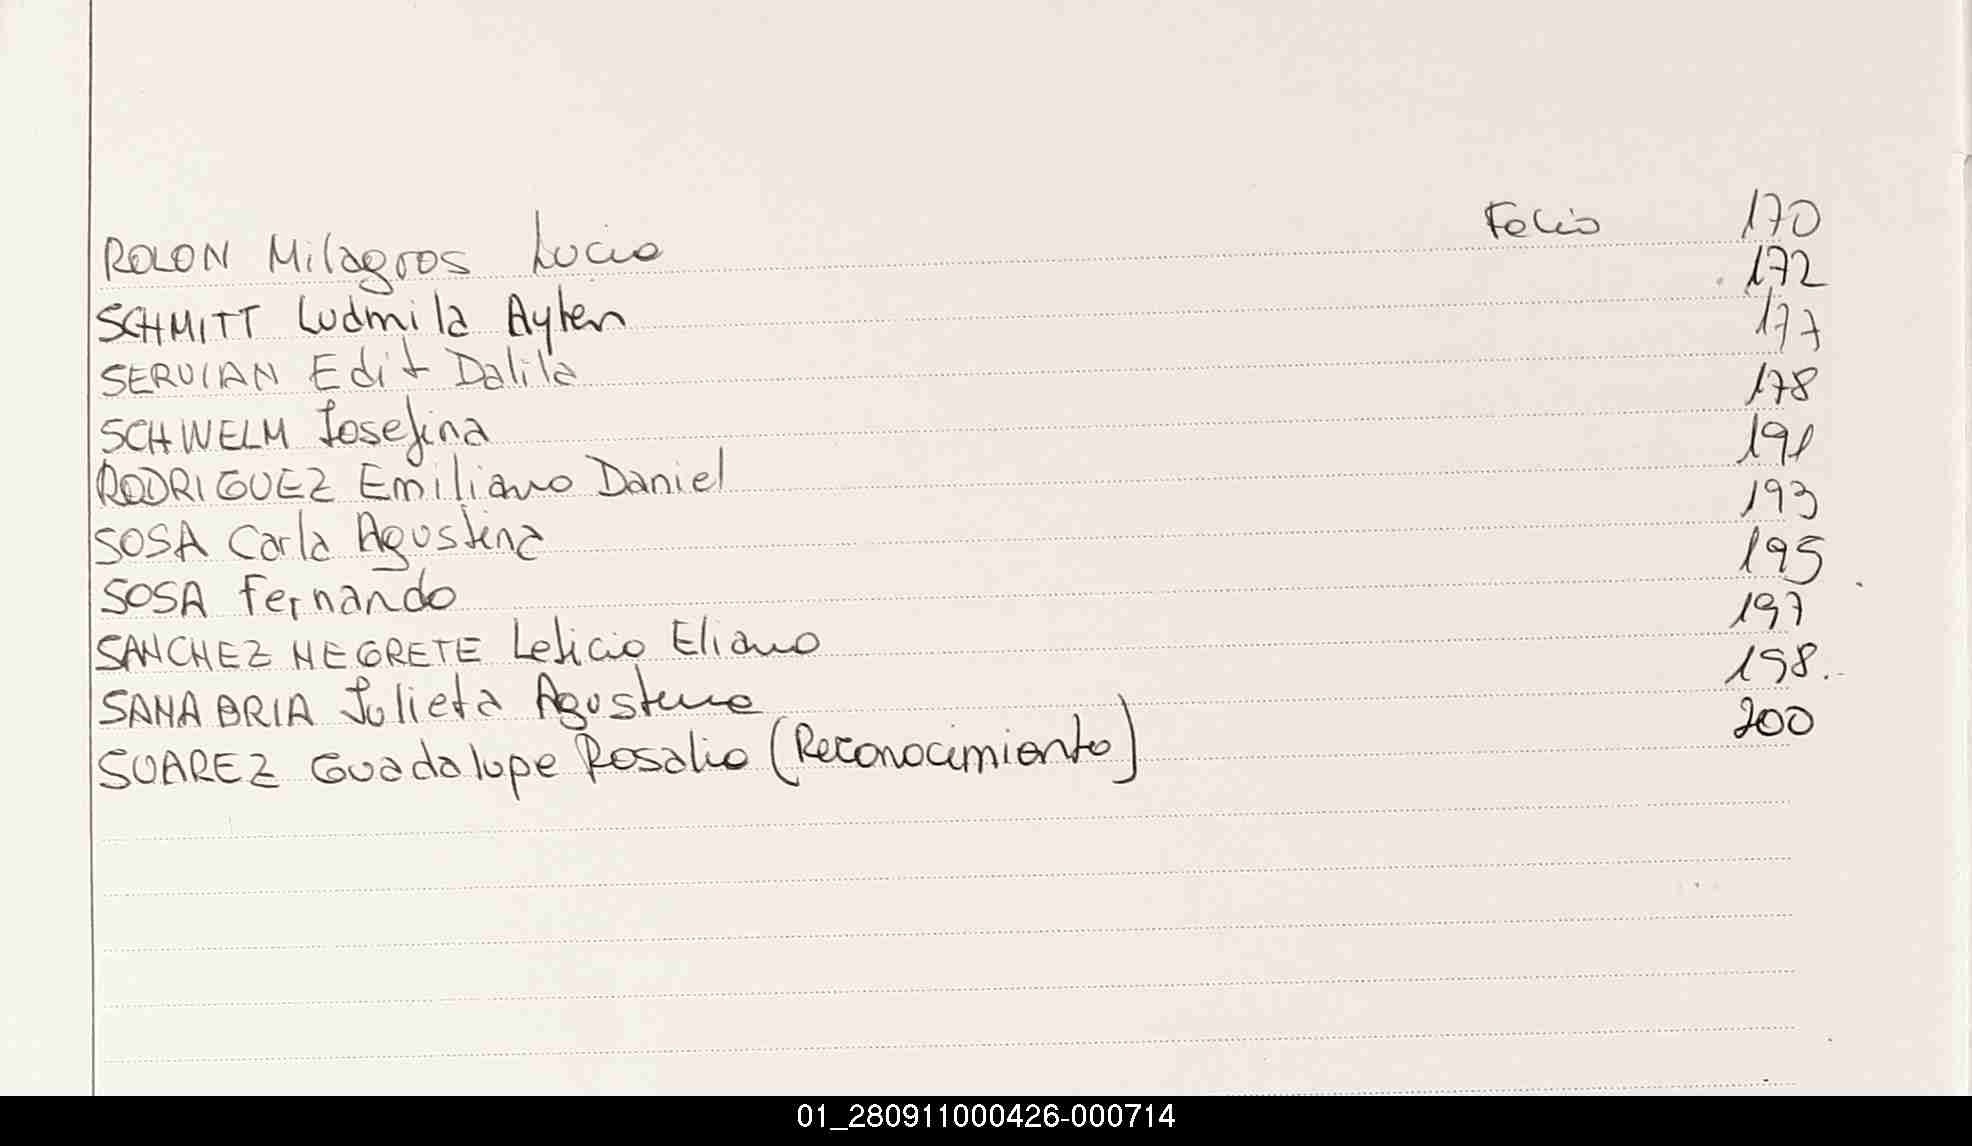 ROLON Milagros Lucia Folio 170
SCHMITT Ludmila Aylen 172
SERVIAN Edit Dalila 177
SCHWELM Josefina 178
RODRIGUEZ Emiliano Daniel 191
SOSA Carla Agustina 193
SOSA Fernando 195
SANCHEZ NEGRETE Leticia Eliana 197
SANABRIA Julieta Agustina 198.
SUAREZ Guadalupe Rosalia (Reconocimiento) 200
01_280911000426-000714